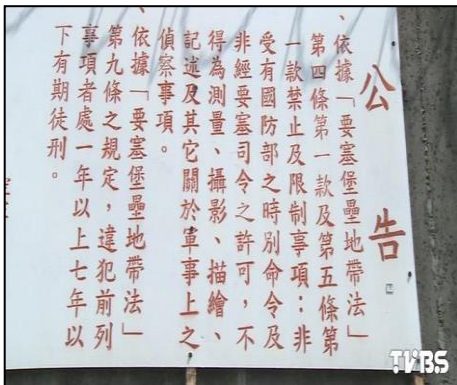 公告
、依據「要塞堡壘地帶法」
第四條第一款及第五條第
一款禁止及限制事項：非
受有國防部之時別命令及
非經要塞司令之許可，不
得為測量、攝影、描繪、
記述及其它關於軍事上之
偵察事項。
、依據「要塞堡壘地帶法」
第九條之規定，違犯前列
事項者處一年以上七年以
下有期徒刑。
TVBS